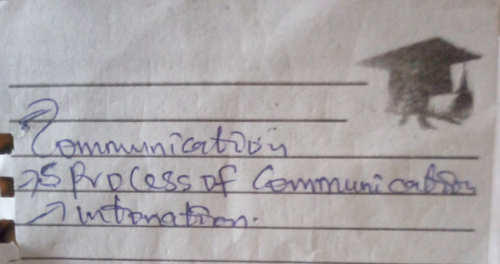 Communication
→ 5 Process of Communication
→ intonation.